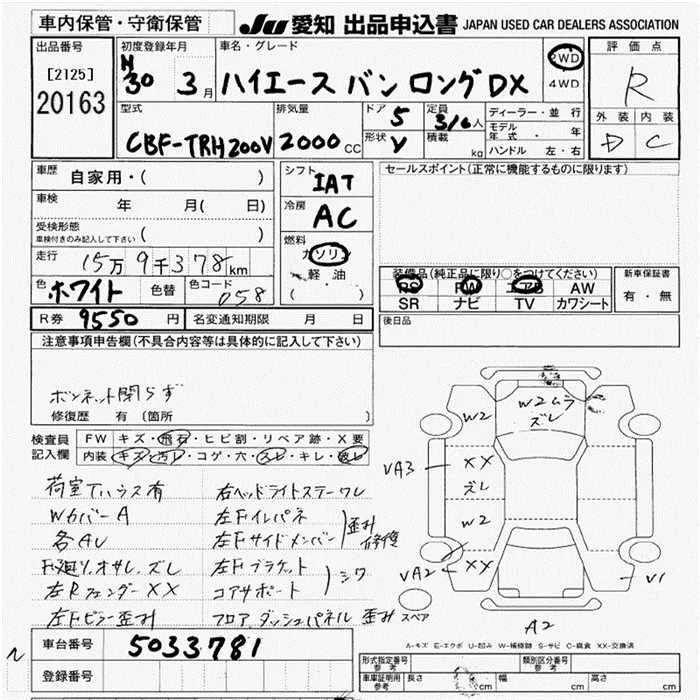 車内保管・守衛保管
JU 愛知 出品申込書 JAPAN USED CAR DEALERS ASSOCIATION
出品番号
[2125]
20163
初度登録年月
H 30 3 月
車名・グレード
ハイエース バン ロング DX
2WD
4WD
評価点
R
外装 内装
D C
型式
CBF-TRH200V
排気量
2000 CC
ドア 5
形状 V
定員 3/6 人
積載 kg
ディーラー・並行
モデル年式 ・ 年
ハンドル 左・右
車歴 自家用・( )
車検 年 月( 日)
受検形態
車検付きのみ記入して下さい ( )
走行 15万9千378 km
色 ホワイト 色替 色コード 058
シフト IAT
冷房 AC
燃料
ガソリン
軽油
( ・ )
セールスポイント(正常に機能するものに限ります)
装備品(純正品に限り○をつけてください)
PS PW エアB AW
SR ナビ TV カワシート
新車保証書
有・無
R券 9550 円 名変通知期限 月 日
後日品
注意事項申告欄(不具合内容等は具体的に記入して下さい)
ボンネット閉らず
修復歴 有(箇所 )
検査員記入欄
FW キズ・飛石・ヒビ割・リペア跡・X要
内装 キズ・汚レ・コゲ・穴・スレ・キレ・破レ
荷室Tハウス有
Wカバー A
各AU
F廻り、オサレ、ズレ
左Rフェンダー XX
左Fピラー歪み
右ヘッドライトステーワレ
左Fインパネ
左Fサイドメンバー
歪み修復
左Fブラケット
コアサポート
シワ
フロア、ダッシュパネル 歪み
W2ムラ
ズレ
W2
VA3
XX
ズレ
W2
VA2
XX
V1
スペア
A2
A-キズ E-エクボ U-凹み W-補修跡 S-サビ C-腐食 XX-交換済
車台番号 5033781
登録番号
型式指定番号 参考
類別区分番号 参考
車庫証明用 参考 長さ cm 幅 cm 高さ cm